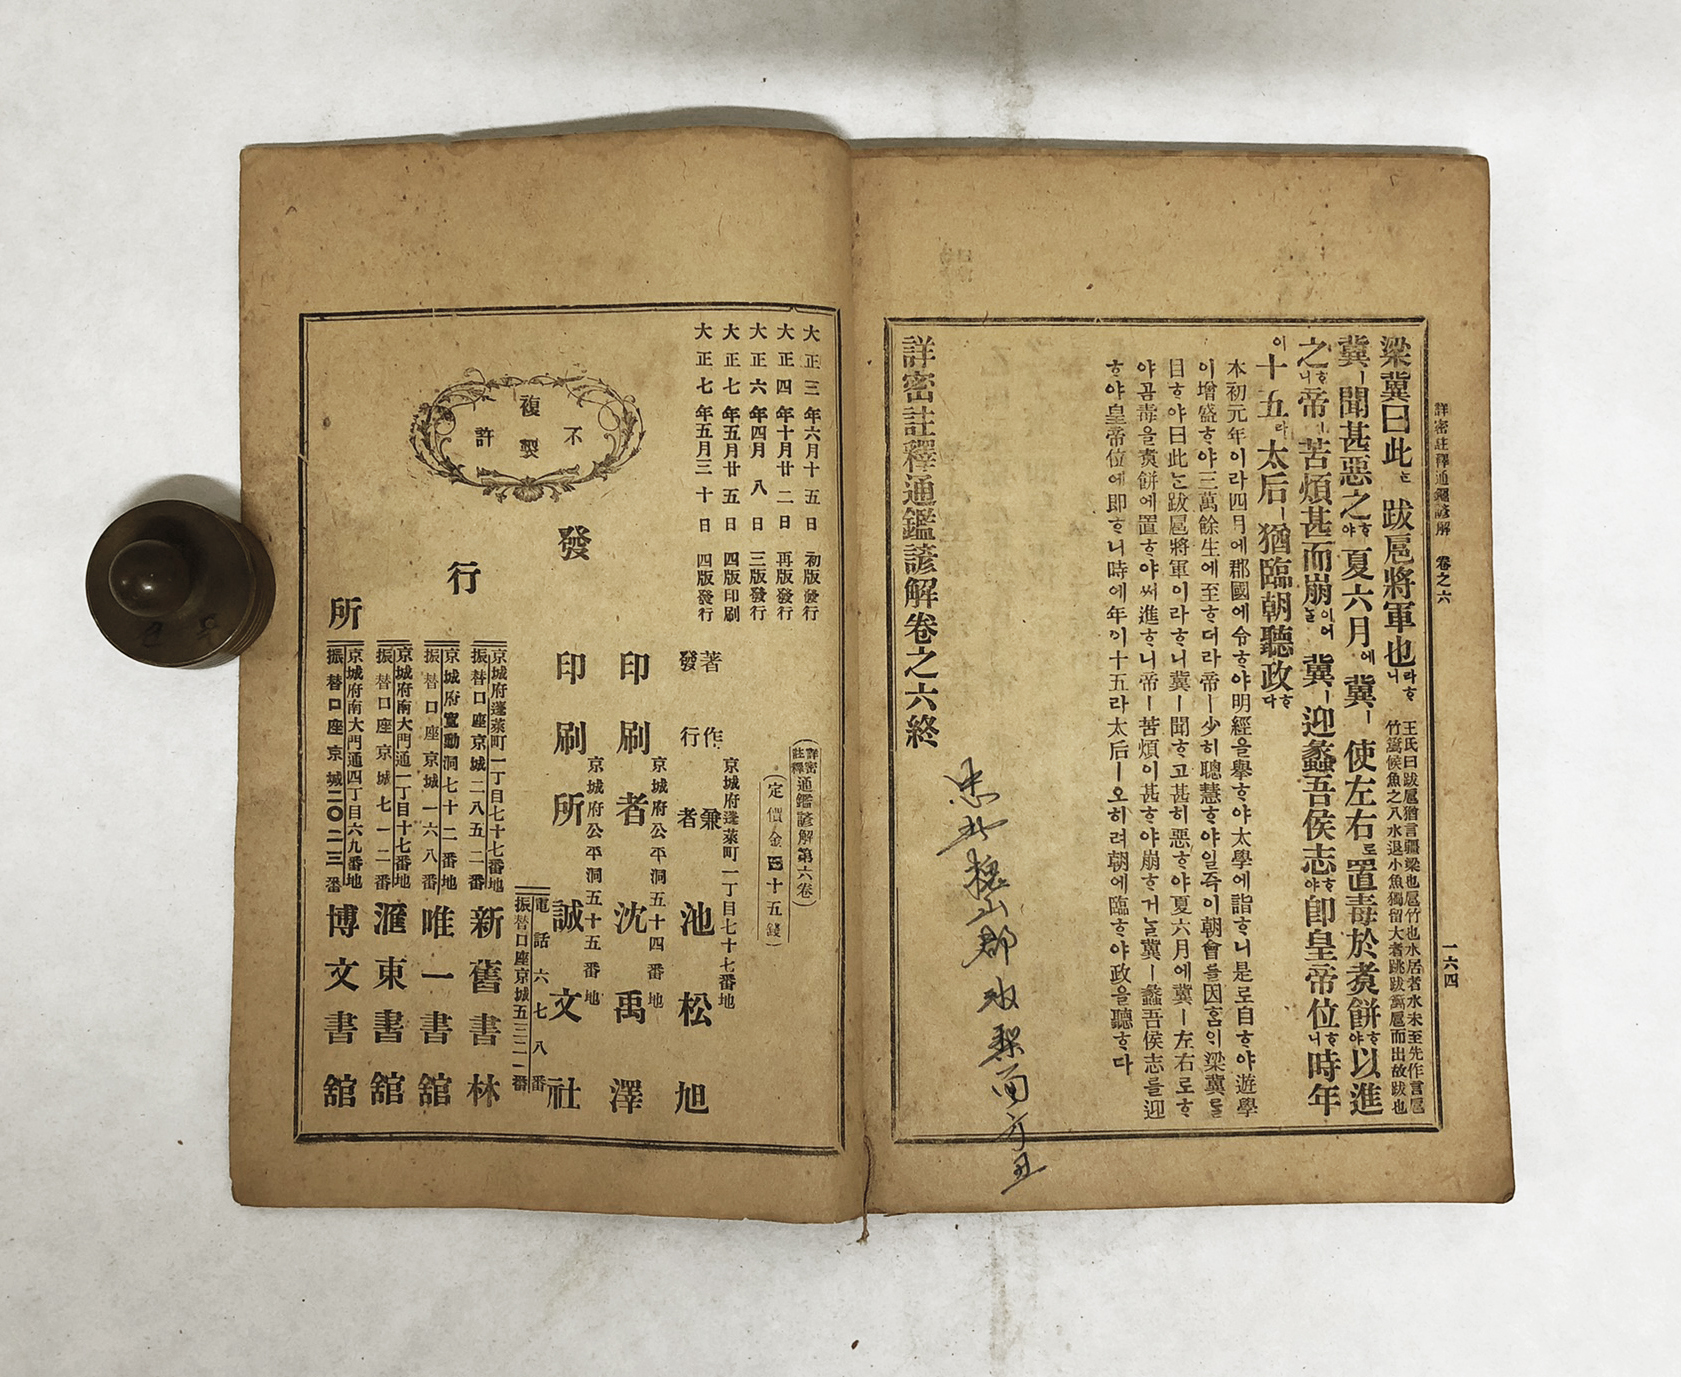 詳密註釋通鑑諺解 卷之六
一六四
梁冀曰此ᄂᆞᆫ跋扈將軍也ㅣ라ᄒᆞ니
王氏曰跋扈猶言疆梁也扈竹也水居者水未至先作言扈
竹籬候魚之入水退小魚獨留大者跳跋籬扈而出故跋也
冀ㅣ聞甚惡之ᄒᆞ야夏六月에冀ㅣ使左右로置毒於煑餅ᄒᆞ야以進
之ᄒᆞ니帝ㅣ苦煩甚而崩이어ᄂᆞᆯ冀ㅣ迎蠡吾侯志ᄒᆞ야卽皇帝位ᄒᆞ니時年
이十五라太后ㅣ猶臨朝聽政ᄒᆞ다
本初元年이라四月에郡國에令ᄒᆞ야明經을擧ᄒᆞ야太學에詣ᄒᆞ니是로自ᄒᆞ야遊學
이增盛ᄒᆞ야三萬餘生에至ᄒᆞ더라帝ㅣ少히聰慧ᄒᆞ야일즉이朝會를因ᄒᆞᆷᄋᆡ梁冀를
目ᄒᆞ야曰此ᄂᆞᆫ跋扈將軍이라ᄒᆞ니冀ㅣ聞ᄒᆞ고甚히惡ᄒᆞ야夏六月에冀ㅣ左右로ᄒᆞ
야곰毒을煑餅에置ᄒᆞ야써進ᄒᆞ니帝ㅣ苦煩이甚ᄒᆞ야崩ᄒᆞ거ᄂᆞᆯ冀ㅣ蠡吾侯志를迎
ᄒᆞ야皇帝位에即ᄒᆞ니時에年이十五라太后ㅣ오히려朝에臨ᄒᆞ야政을聽ᄒᆞ다
忠北槐山郡
詳密註釋通鑑諺解卷之六終
大正三年六月十五日 初版發行
大正四年十月廿二日 再版發行
大正六年四月八日 三版發行
大正七年五月廿五日 四版印刷
大正七年五月三十日 四版發行
不許複製
(詳密註釋通鑑諺解第六卷)
(定價金四十五錢)
京城府蓬萊町一丁目七十七番地
著作兼發行者 池松旭
京城府公平洞五十四番地
印刷者 沈禹澤
京城府公平洞五十五番地
印刷所 誠文社
發行所
電話六七八番
振替口座京城五三二二番
京城府蓬萊町一丁目七十七番地
振替口座京城二八五二番
新舊書林
京城府寬勳洞七十二番地
振替口座京城一六八番
唯一書舘
京城府南大門通一丁目十七番地
振替口座京城七一二番
滙東書舘
京城府南大門通四丁目六九番地
振替口座京城二〇二三番
博文書舘